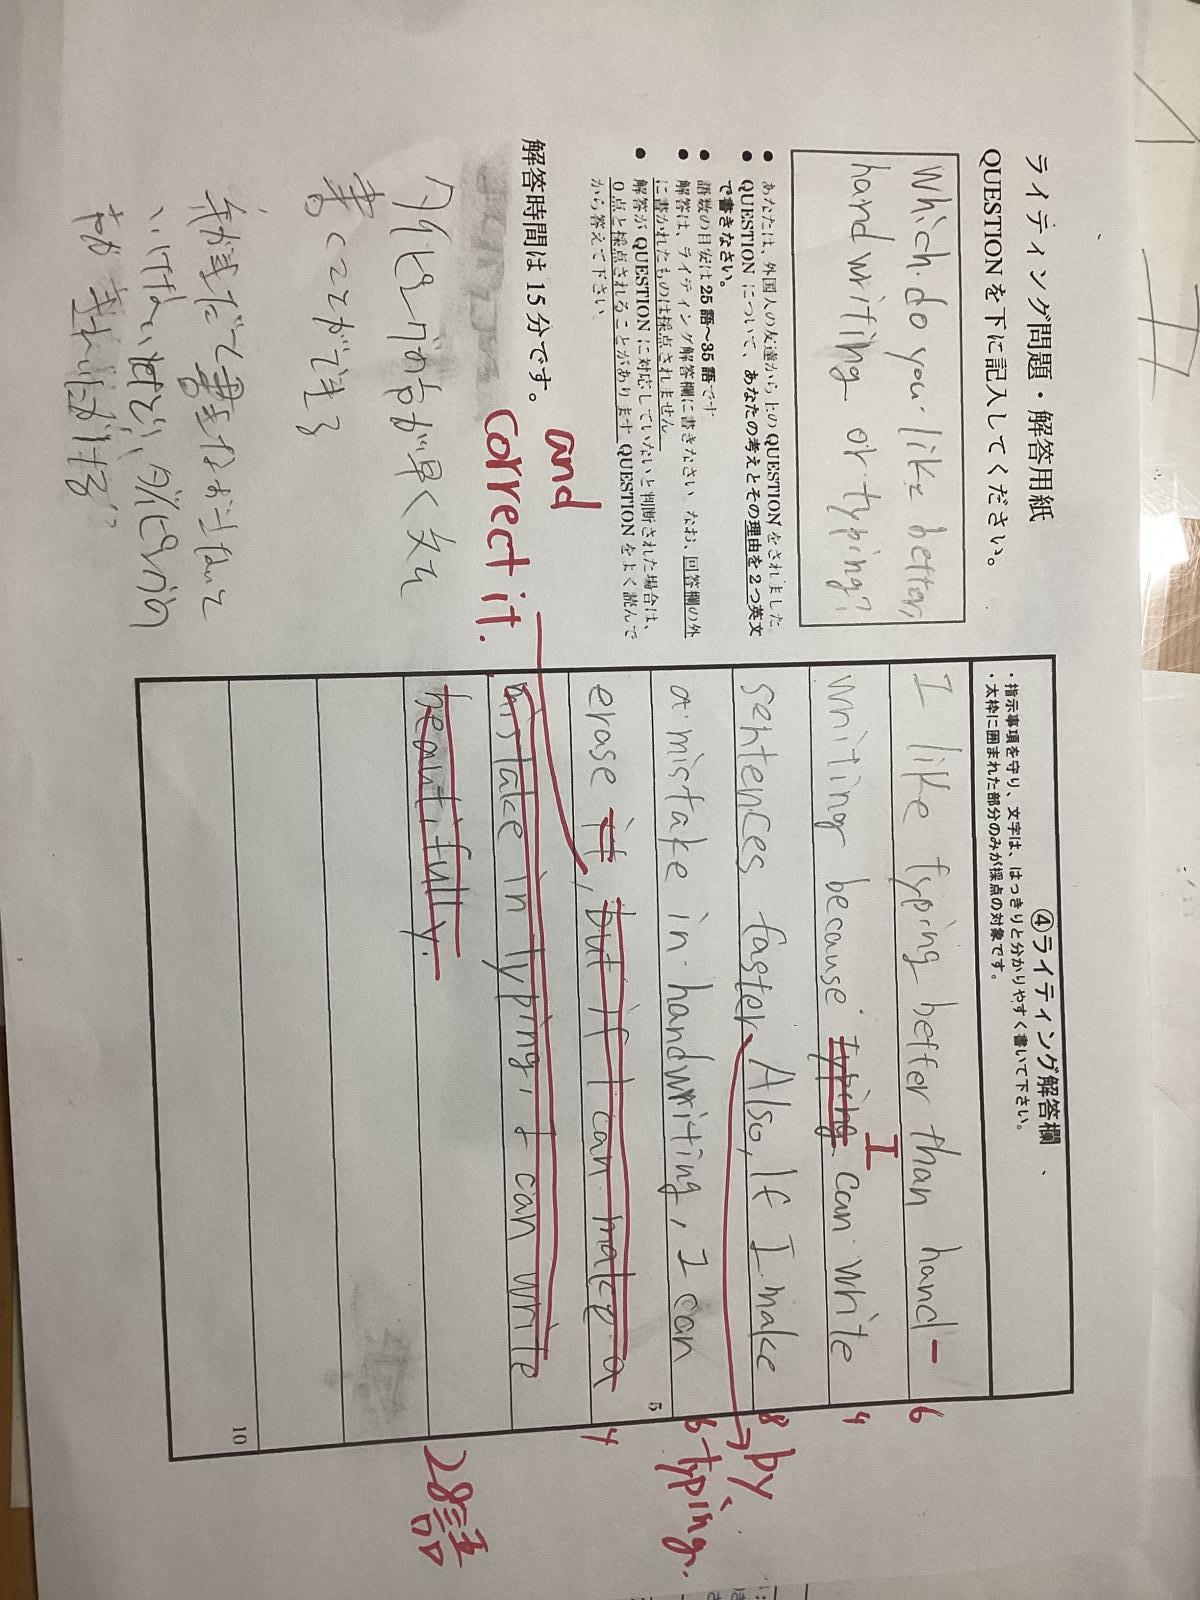 ライティング問題・解答用紙
QUESTIONを下に記入してください。
Which do you like better,
hand writing or typing?
● あなたは、外国人の友達から上のQUESTIONをされました。
● QUESTIONについて、あなたの考えとその理由を2つ英文
で書きなさい。
● 語数の目安は25語〜35語です
● 解答は、ライティング解答欄に書きなさい。なお、回答欄の外
に書かれたものは採点されません。
● 解答がQUESTIONに対応していないと判断された場合は、
0点と採点されることがあります QUESTIONをよく読んで
から答えて下さい
解答時間は15分です。
and
correct it.
タイピングの方が早く文を
書くことができる
手がきだて書きなおさないと
いけないけどタイピングの
④ライティング解答欄
・指示事項を守り、文字は、はっきりと分かりやすく書いて下さい。
・太枠に囲まれた部分のみが採点の対象です。
I like typing better than hand-
6
writing because typing can write
I
4
sentences faster. Also, If I make
8
by
typing.
a mistake in handwriting, I can
6
5
erase it, but if I can make a
4
mistake in typing, I can write
beautifully.
28語
10